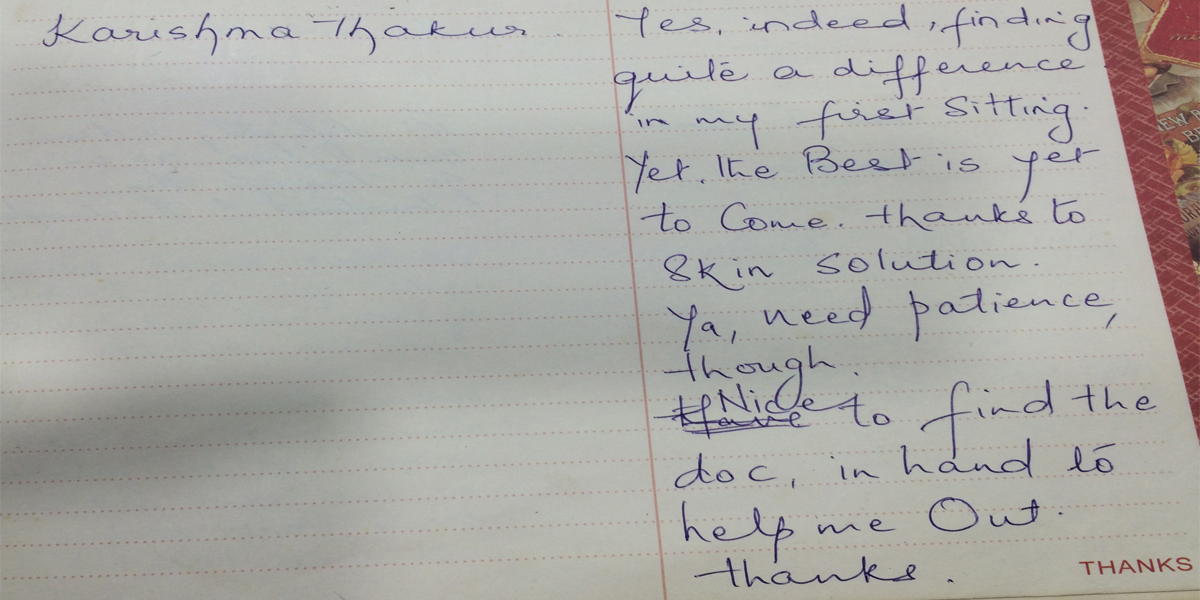 Karishma Thakur.
Yes, indeed, finding
quite a difference
in my first sitting.
Yet. the Best is yet
to Come. thanks to
Skin solution.
Ya, need patience,
though.
Nice to find the
doc, in hand to
help me Out.
thanks.
THANKS